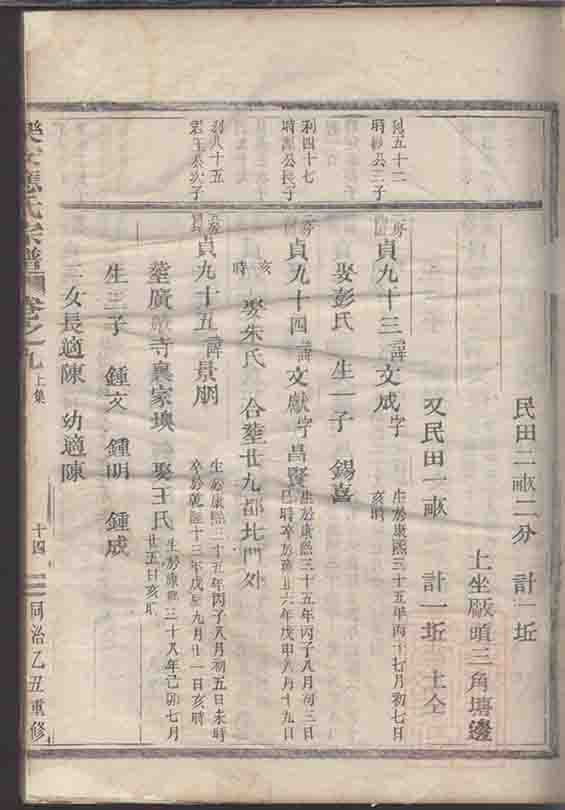 民田二畝二分　計一坵
上坐廠
三角塘邊
又民田一畝　計一坵　土仝
利五十二
時
公三子
貞九十三諱文成字
生於康熙三十五年丙
七月初七日
亥時
娶彭氏　生一子　錫喜
利四十七
時
公長子
貞九十四諱文獻字昌賢
生於康熙三十五年丙子八月初三日
時卒於雍
六年戊申八月十九日
亥
時
娶朱氏　合塟廿九都北門外
利八十五
公次子
貞九十五諱景朋
生於康熙三十五年丙子八月初五日未時
卒於乾隆十三年戊辰九月廿一日亥時
塟廣
寺
家坳　娶王氏
生於康熙三十八年己卯七月
廿五日亥
生三子　鍾文　鍾明　鍾成
二女長適陳　幼適陳
應氏宗譜
卷之九
上集
十四
同治乙丑重修